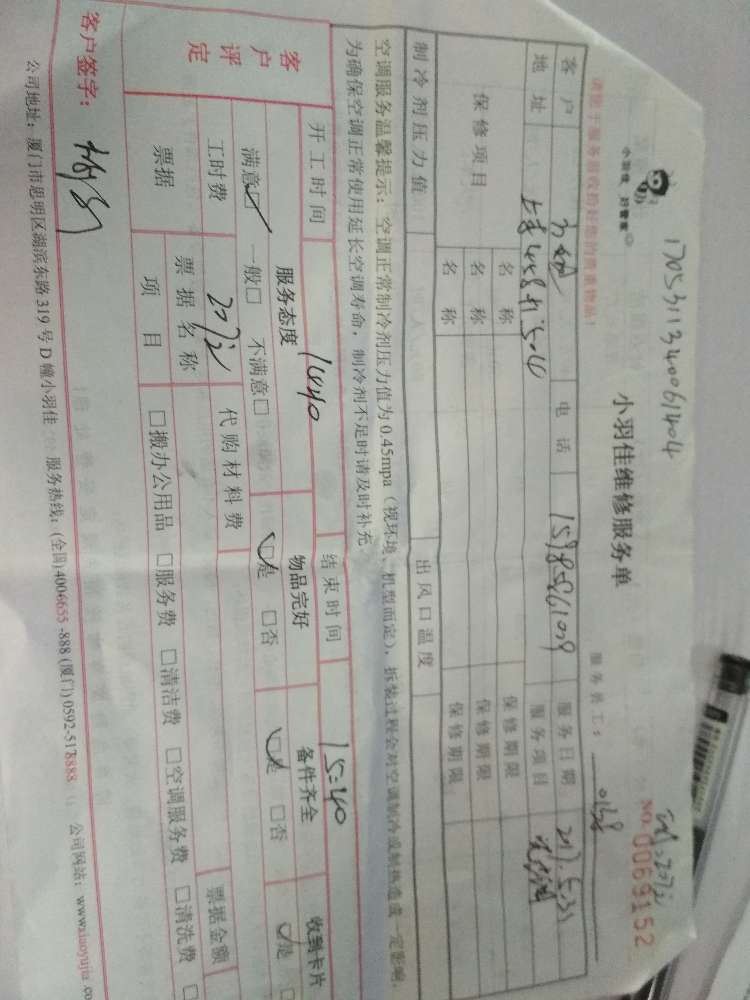 170531134006 1404
小羽佳 好管家
小羽佳维修服务单
NO: 0069152
请您于服务前收拾好您的贵重物品！
服务员工： 0138
客户 电话 服务日期
地址 服务项目
保修项目 名称 保修期限
名称 保修期限
名称 保修期限
制冷剂压力值 出风口温度
空调服务温馨提示：空调正常制冷剂压力值为0.45mpa（视环境、机型而定），拆装过程会对空调制冷或制热造成一定影响，
为确保空调正常使用延长空调寿命，制冷剂不足时请及时补充
开工时间 1440 结束时间 15:40
客户评定 服务态度 物品完好 备件齐全 收到卡片
满意☑ 一般□ 不满意□ ☑是 □否 ☑是 □否 ☑是 □
工时费 207元 代购材料费
票据 票据名称 票据金额
项目 □搬办公用品 □服务费 □清洁费 □空调服务费 □清洗费 □
客户签字：
公司地址：厦门市思明区湖滨东路319号D幢小羽佳 服务热线：(全国)4006655-888 (厦门)0592-5178888 公司网站：www.xiaoyujia.co